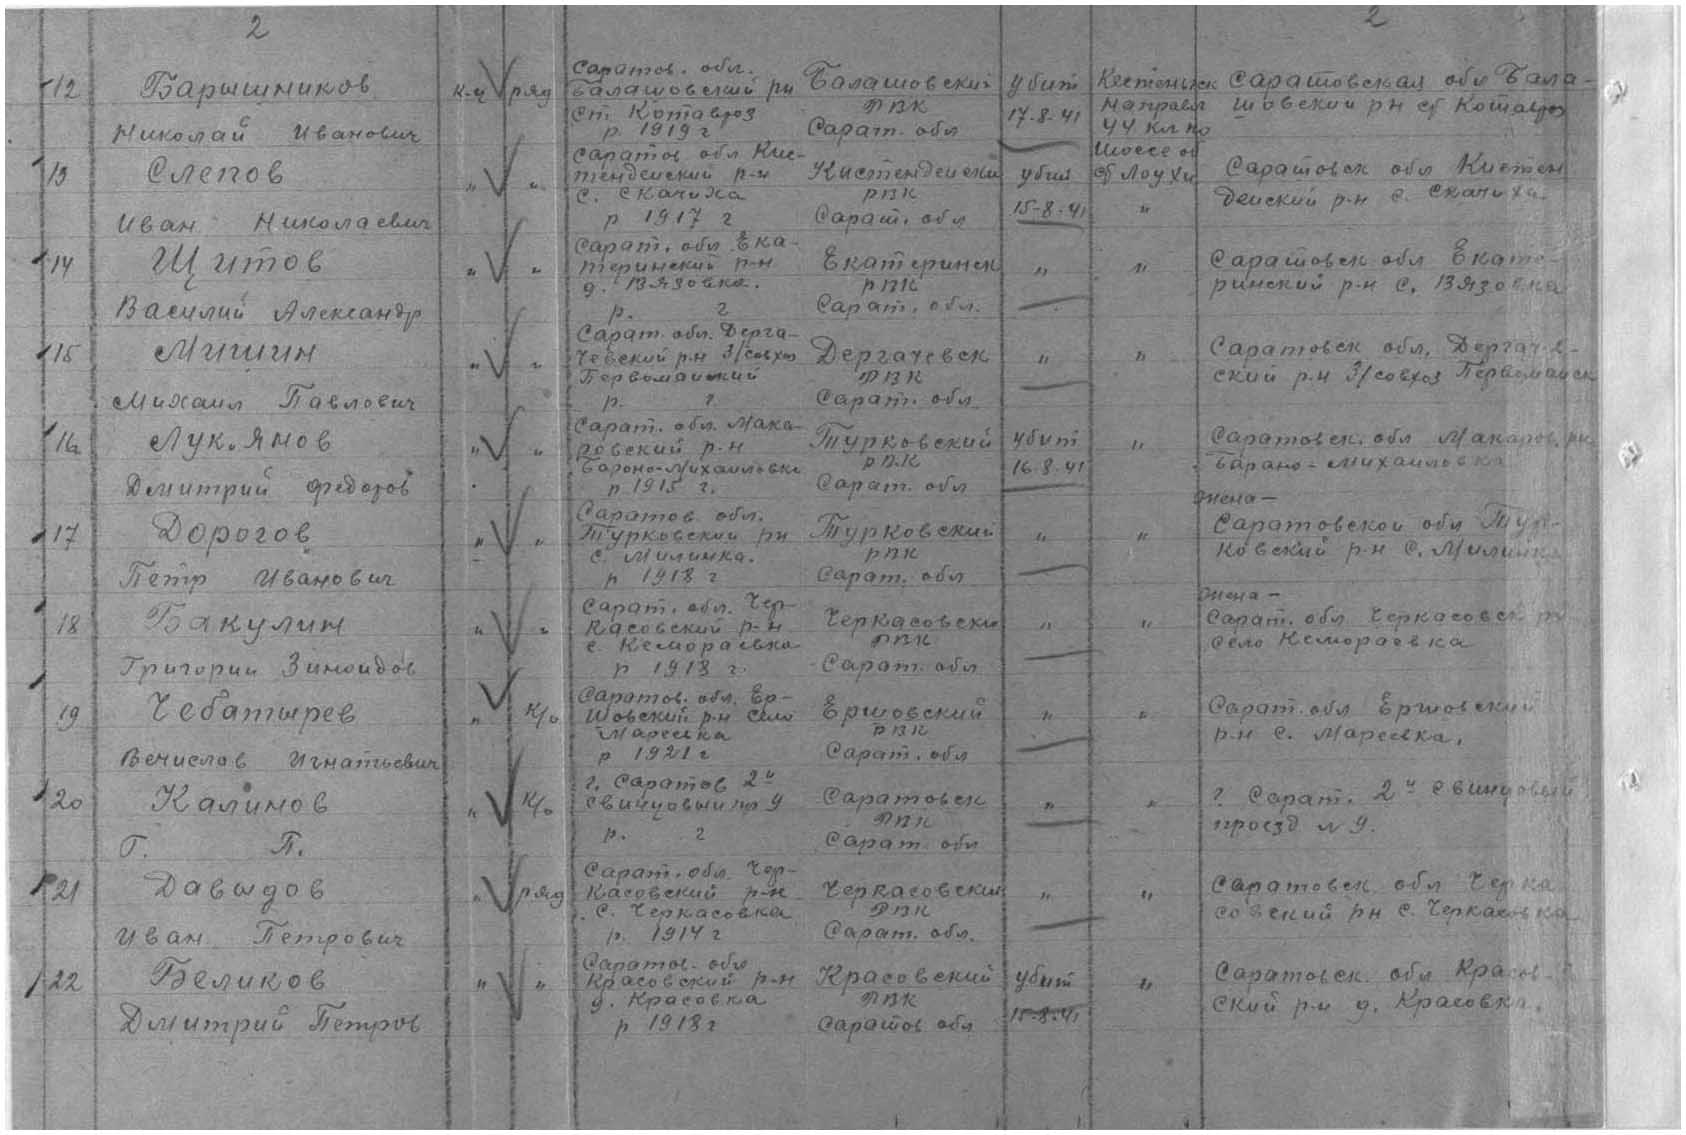 2 2
12 Барышников к-ц ряд Саратов. обл. Балашовский рн ст. Котавроз р 1919 г Балашовский РВК Сарат. обл убит 17-8-41 Кестеньгск направл 44 км по шоссе от ст Лоухи Саратовская обл Балашовский рн ст Котавроз
Николай Иванович
13 Слепов " " Саратов обл Кистендейский р-н с. Скачиха р 1917 г Кистендейский РВК Сарат. обл убит 15-8-41 " Саратовск обл Кистендейский р-н с. Скачиха
Иван Николаевич
14 Щитов " " Сарат. обл Екатеринский р-н д. Вязовка. р. г Екатеринск РВК Сарат. обл. " " Саратовск обл Екатеринский р-н с. Вязовка
Василий Александр
15 Мишин " " Сарат. обл. Дергачевский р-н З/совхоз Первомайский р. г. Дергачевск РВК Сарат. обл " " Саратовск обл. Дергачевский р-н З/совхоз Первомайск
Михаил Павлович
16 Лукьянов " " Сарат. обл. Макаровский р-н Бароно-Михайловка р 1915 г. Турковский РВК Сарат. обл убит 16-8-41 " Саратовск. обл Макаров. рн Барано-Михайловка
Дмитрий Федоров
17 Дорогов " " Саратов обл. Турковский рн с. Милинка. р 1918 г Турковский РВК Сарат. обл " " жена- Саратовской обл Турковский р-н с. Милинка
Петр Иванович
18 Бакулин " " Сарат. обл. Черкасовский р-н с. Кемораевка р 1918 г. Черкасовский РВК Сарат. обл " " жена- Сарат. обл Черкасовск рн село Кемораевка
Григорий Зиноидов
19 Чебатырев " к/о Саратов. обл. Ершовский р-н село Мареевка р 1921 г Ершовский РВК Сарат. обл " " Сарат. обл Ершовский р-н с. Мареевка.
Вечислав Игнатьевич
20 Калинов " к/о г. Саратов 2й свинцовый пр 9 р. г Саратовск РВК Сарат. обл " " г. Сарат. 2й Свинцовый проезд N 9.
Г. П.
21 Давыдов " ряд Сарат. обл. Черкасовский р-н с. Черкасовка р. 1914 г Черкасовский РВК Сарат. обл. " " Саратовск. обл Черкасовский рн с. Черкасовка
Иван Петрович
22 Беликов " " Саратов. обл Красовский р-н д. Красовка р 1918 г Красовский РВК Саратов обл убит 15-8-41 " Саратовск. обл Красовский р-н д. Красовка.
Дмитрий Петров